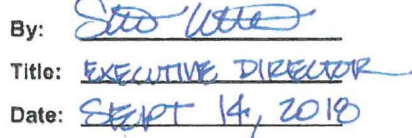 By:
Title: EXECUTIVE DIRECTOR
Date: SEPT 14, 2018